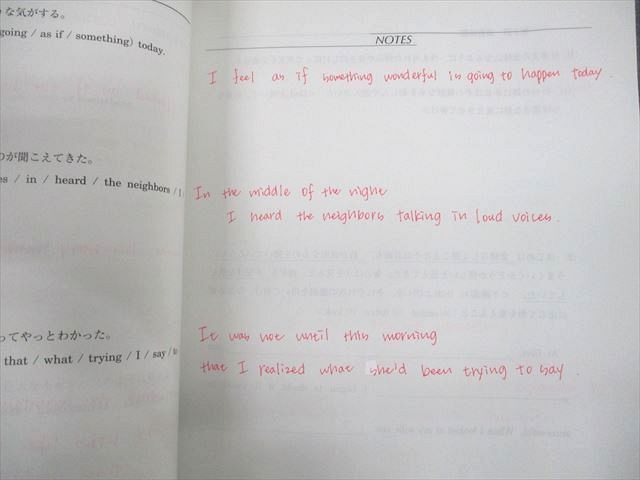 な気がする。
going / as if / something) today.
NOTES
I feel as if something wonderful is going to happen today.
のが聞こえてきた。
es / in / heard / the neighbors / I
In the middle of the night
I heard the neighbors talking in loud voices.
ってやっとわかった。
that / what / trying / I / say / to
It was not until this morning
that I realized what she'd been trying to say.